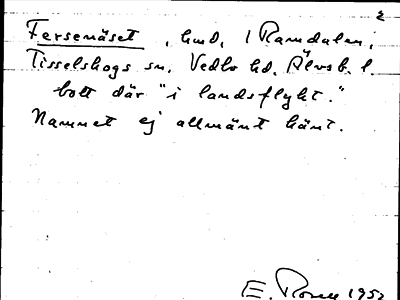 2
Fersenäset, hmd, i Ramdalen,
Tisselskogs sn. Vedbo hd. Älvsb. l.
bott där "i landsflykt."
Namnet ej allmänt känt.
E. Rosell 1952